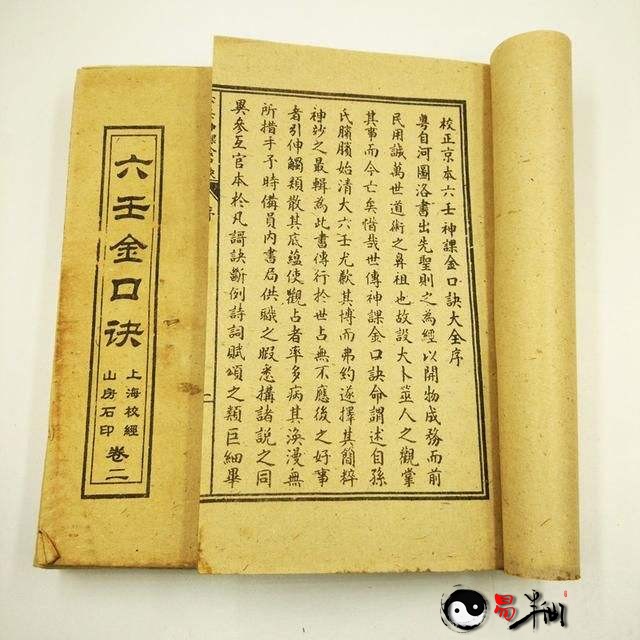 校正京本六壬神課金口訣大全序
粵自河圖洛書出先聖則之為經以開物成務而前
民用誠萬世道術之鼻祖也故設大卜筮人之觀掌
其事而今亡矣惜哉世傳神課金口訣命謂述自孫
氏臏臏始清大六壬尤歉其博而弗約遂擇其簡粹
神妙之最輯為此書傳行於世占無不應後之好事
者引伸觸類散其底蘊使觀占者率多病其渙漫無
所措手予時備員內書局供職之暇悉搆諸說之同
異參互官本於凡謌訣斷例詩詞賦頌之類巨細畢
六壬金口诀
上海校經
山房石印
卷二
易半仙